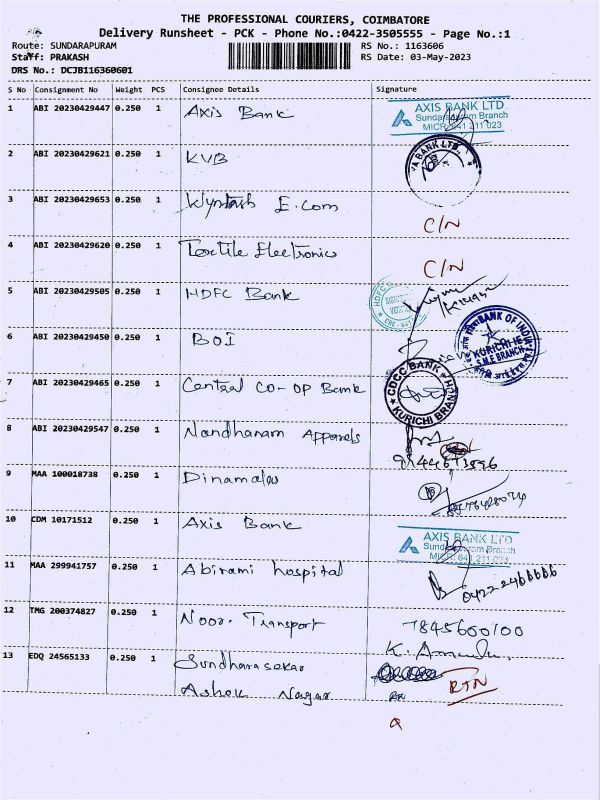 THE PROFESSIONAL COURIERS, COIMBATORE
Delivery Runsheet - PCK - Phone No.:0422-3505555 - Page No.:1
Route: SUNDARAPURAM RS No.: 1163606
Staff: PRAKASH RS Date: 03-May-2023
DRS No.: DCJB116360601
S No Consignment No Weight PCS Consignee Details Signature
1 ABI 20230429447 0.250 1 Axis Bank AXIS BANK LTD
Sundarapuram Branch
MICR: 641 211 023
2 ABI 20230429621 0.250 1 KVB BANK LTD.
3 ABI 20230429653 0.250 1 E.com
C/N
4 ABI 20230429620 0.250 1 Textile Electronics
C/N
5 ABI 20230429505 0.250 1 HDFC Bank HDFC
6 ABI 20230429450 0.250 1 BOI BANK OF INDIA
KURICHI IE
S.M.E BRANCH
7 ABI 20230429465 0.250 1 Central CO-OP Bank CDCC BANK
KURICHI BRAN
8 ABI 20230429547 0.250 1 Nandhanam Apparels
9 MAA 100018738 0.250 1 Dinamalar
10 CDM 10171512 0.250 1 Axis Bank AXIS BANK LTD
Sundarapuram Branch
MICR: 641 211 023
11 MAA 299941757 0.250 1 Abirami hospital
0422 2466666
12 TMG 200374827 0.250 1 Noor. Transport 7845600100
13 EDQ 24565133 0.250 1 Sundharasekar
Ashok Nagar RTN